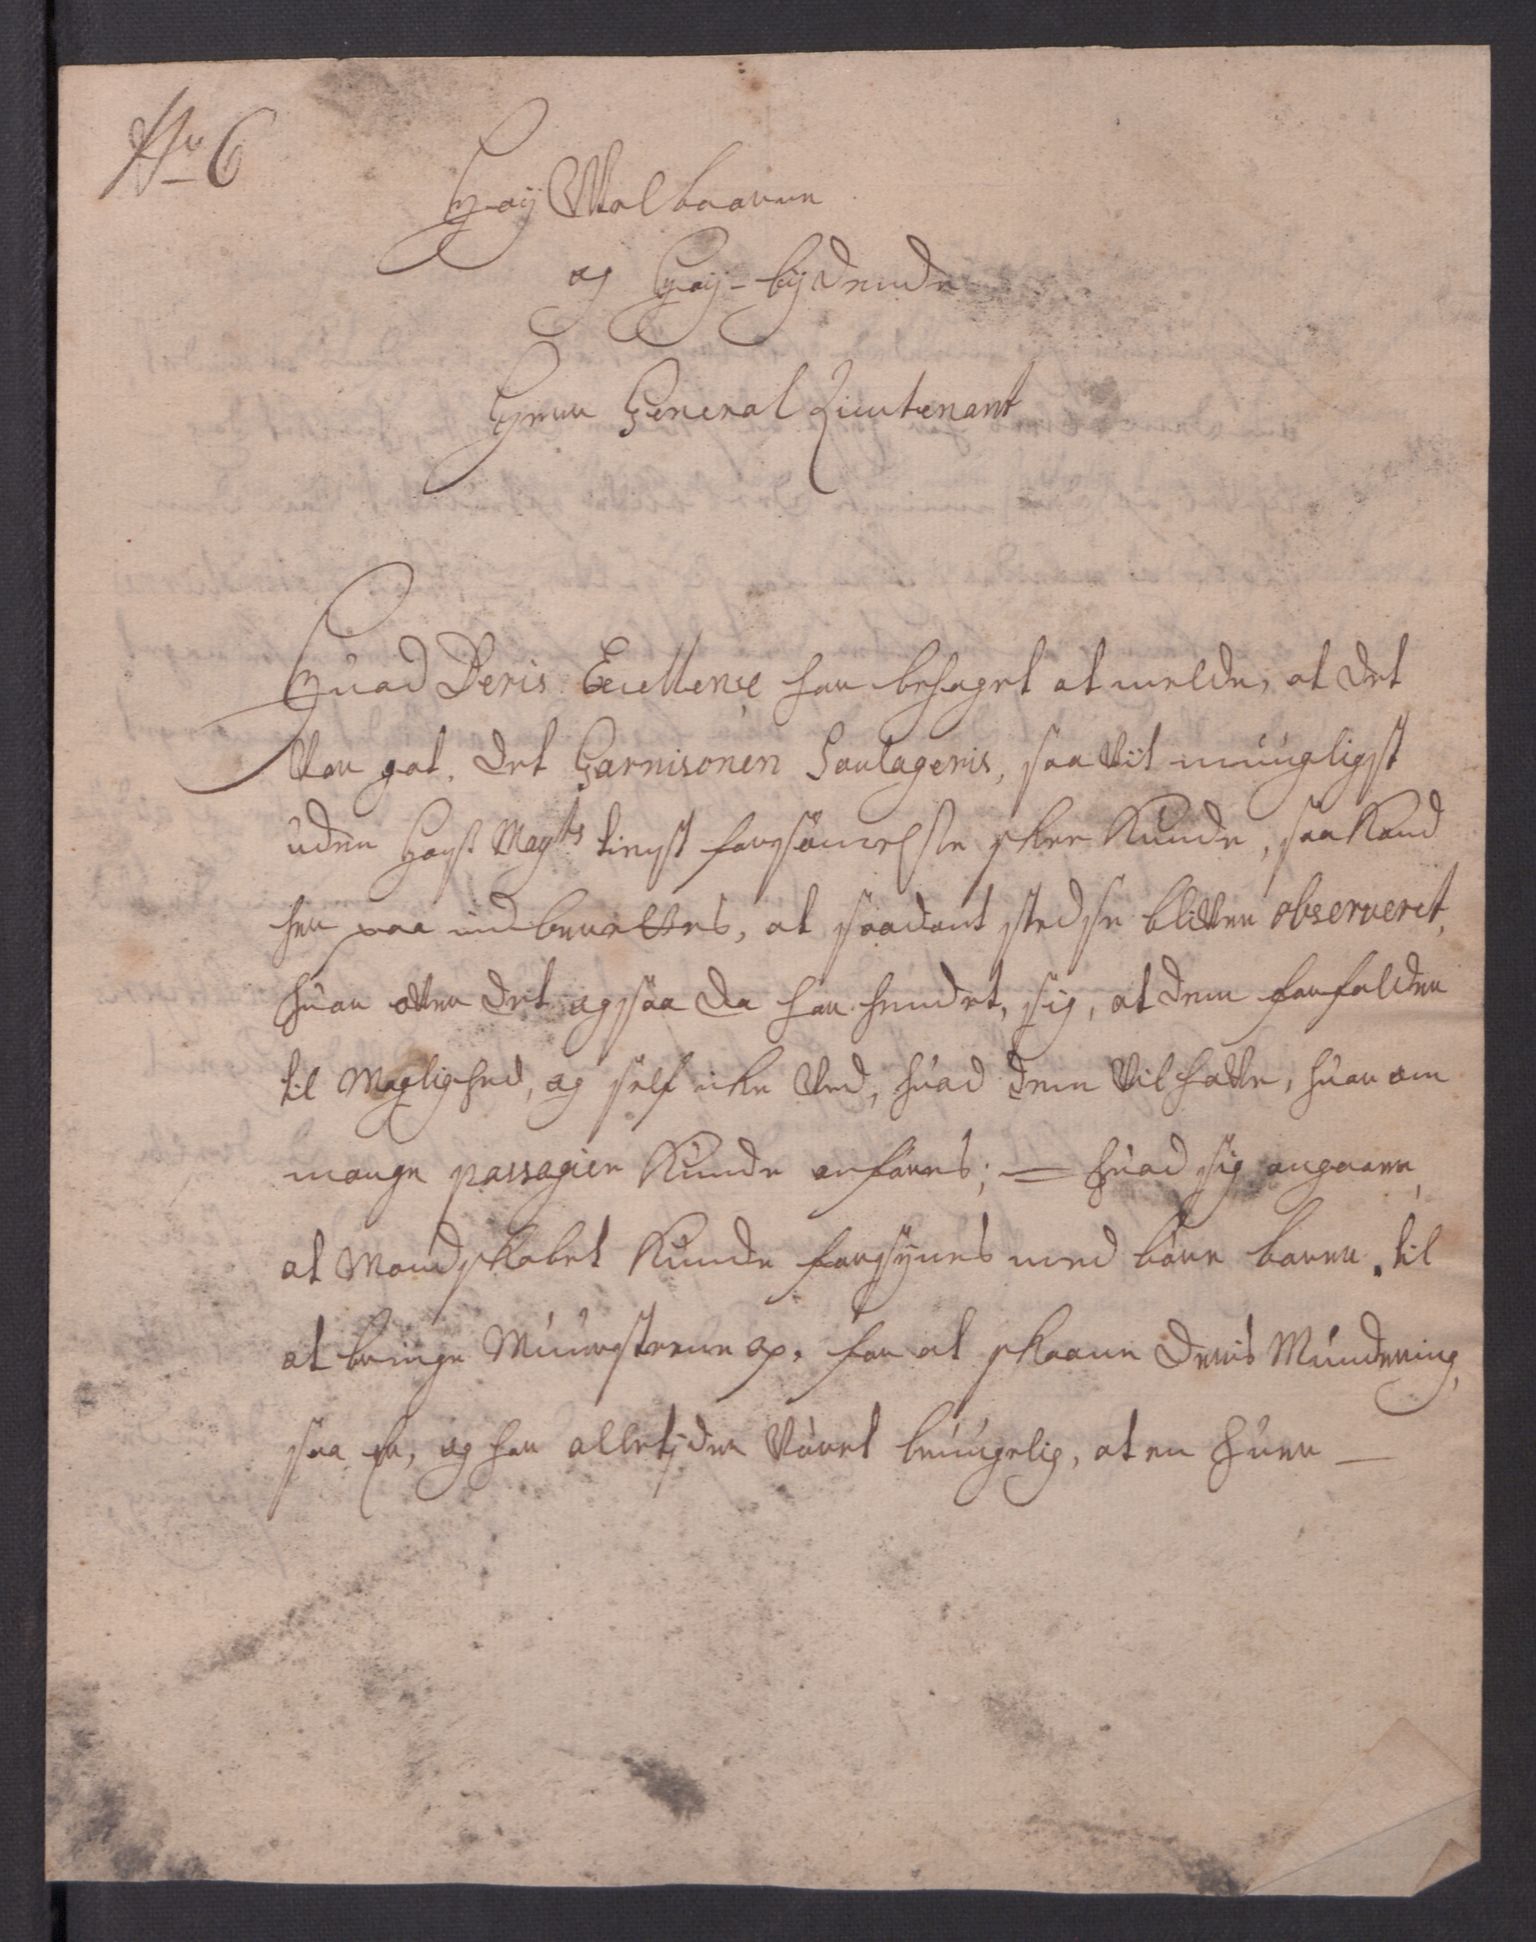 No 6
Høÿ Wel baarne
og Høÿ-bÿdende
Herre General Lieutenant
Huad Deris Excellence har behaget at melde, at det
Var got, det Garnisonen Soulageris, saa Vit muugligst
uden Høys. Mayts tienst forsømmelse skee Kunde, saa Kand
her paa indberettes, at saadant stedse bliver observeret,
huor over det ogsaa da har hendet sig, at dem forfalder
til Maglighed, og self icke Ved, huad dem Vil have, huor om
mange passagier Kunde anføres; = huad sig angaaer,
at Mandskabet Kunde forsÿnes med böre baarer, til
at bringe Muurstenene op, for at skaane deris Mundering,
saa er, og har alletjder Været brúúgelig, at en huer –